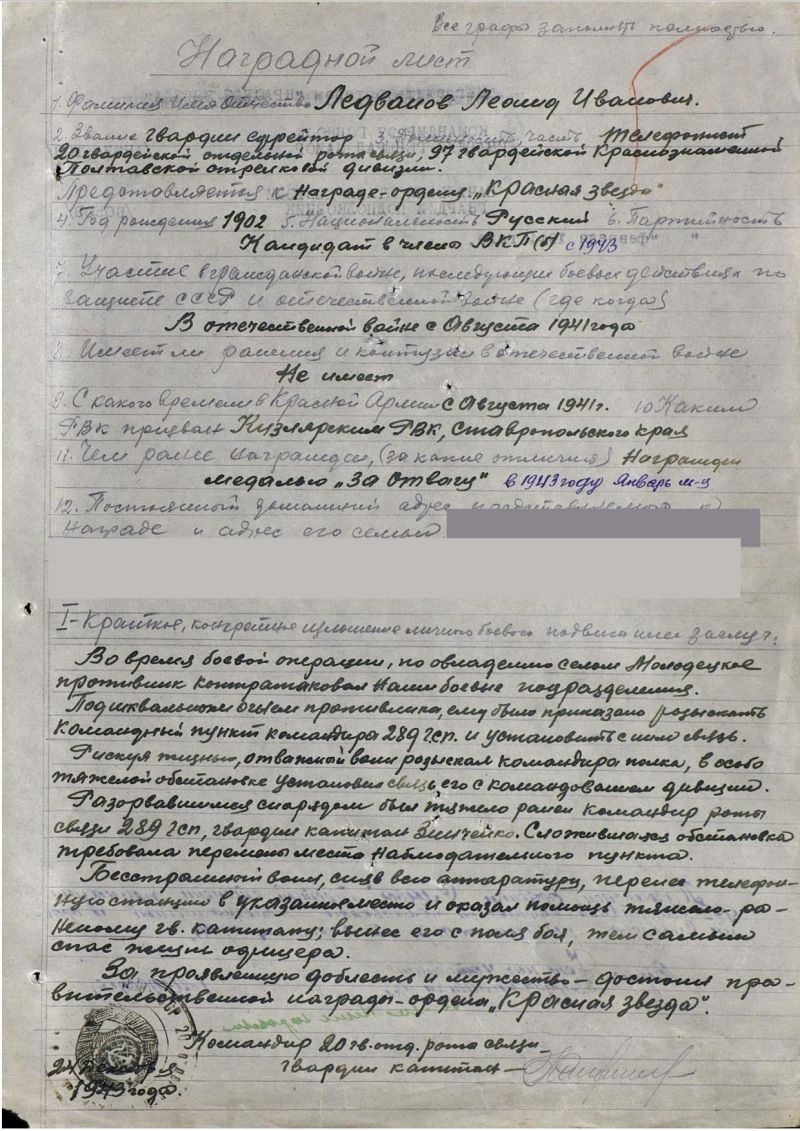 Все графы заполнять полностью.
Наградной лист
1. Фамилия Имя Отчество Ледванов Леонид Иванович.
2. Звание гвардии ефрейтор 3. Должность, часть Телефонист
20 гвардейской отдельной роты связи, 97 гвардейской Краснознаменной
Полтавской стрелковой дивизии.
Представляется к награде - ордену „Красная звезда“
4. Год рождения 1902 5. Национальность Русский 6. Партийность
Кандидат в члены ВКП(б) с 1943
7. Участие в гражданской войне, последующих боевых действиях по
защите СССР и отечественной войне (где когда)
В отечественной войне с Августа 1941 года
8. Имеет ли ранения и контузии в отечественной войне
Не имеет
9. С какого времени в Красной Армии с Августа 1941 г. 10 Каким
РВК призван Кизлярским РВК, Ставропольского края
11. Чем ранее награжден, (за какие отличия) Награжден
медалью „За Отвагу“ в 1943 году Январь м-ц
12. Постоянный домашний адрес представляемого к
награде и адрес его семьи
I - Краткое, конкретное изложение личного боевого подвига или заслуг:
Во время боевой операции, по овладению селом Молодецкое
противник контратаковал наши боевые подразделения.
Под шквальным огнем противника, ему было приказано разыскать
командный пункт командира 289 гсп. и установить с ним связь.
Рискуя жизнью, отважный воин розыскал командира полка, в особо
тяжелой обстановке установил связь его с командованием дивизии.
Разорвавшимся снарядом был тяжело ранен командир роты
связи 289 гсп, гвардии капитан Зинченко. Сложившаяся обстановка
требовала перемены места наблюдательного пункта.
Бесстрашный воин, сняв всю аппаратуру, перенес телефон-
ную станцию в указанное место и оказал помощь тяжело-ра-
неному гв. капитану; вынес его с поля боя, тем самым
спас жизнь офицера.
За проявленную доблесть и мужество - достоин пра-
вительственной награды - ордена „Красная звезда“.
Командир 20 гв. отд. роты связи
гвардии капитан -
24
1943 года.